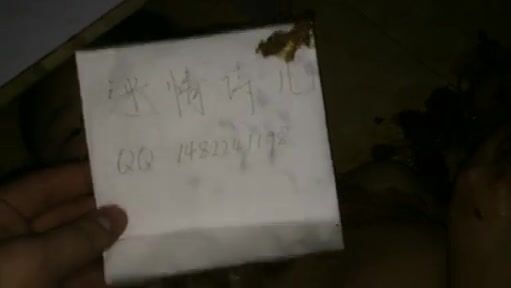 迷情诗儿
QQ 1482241198